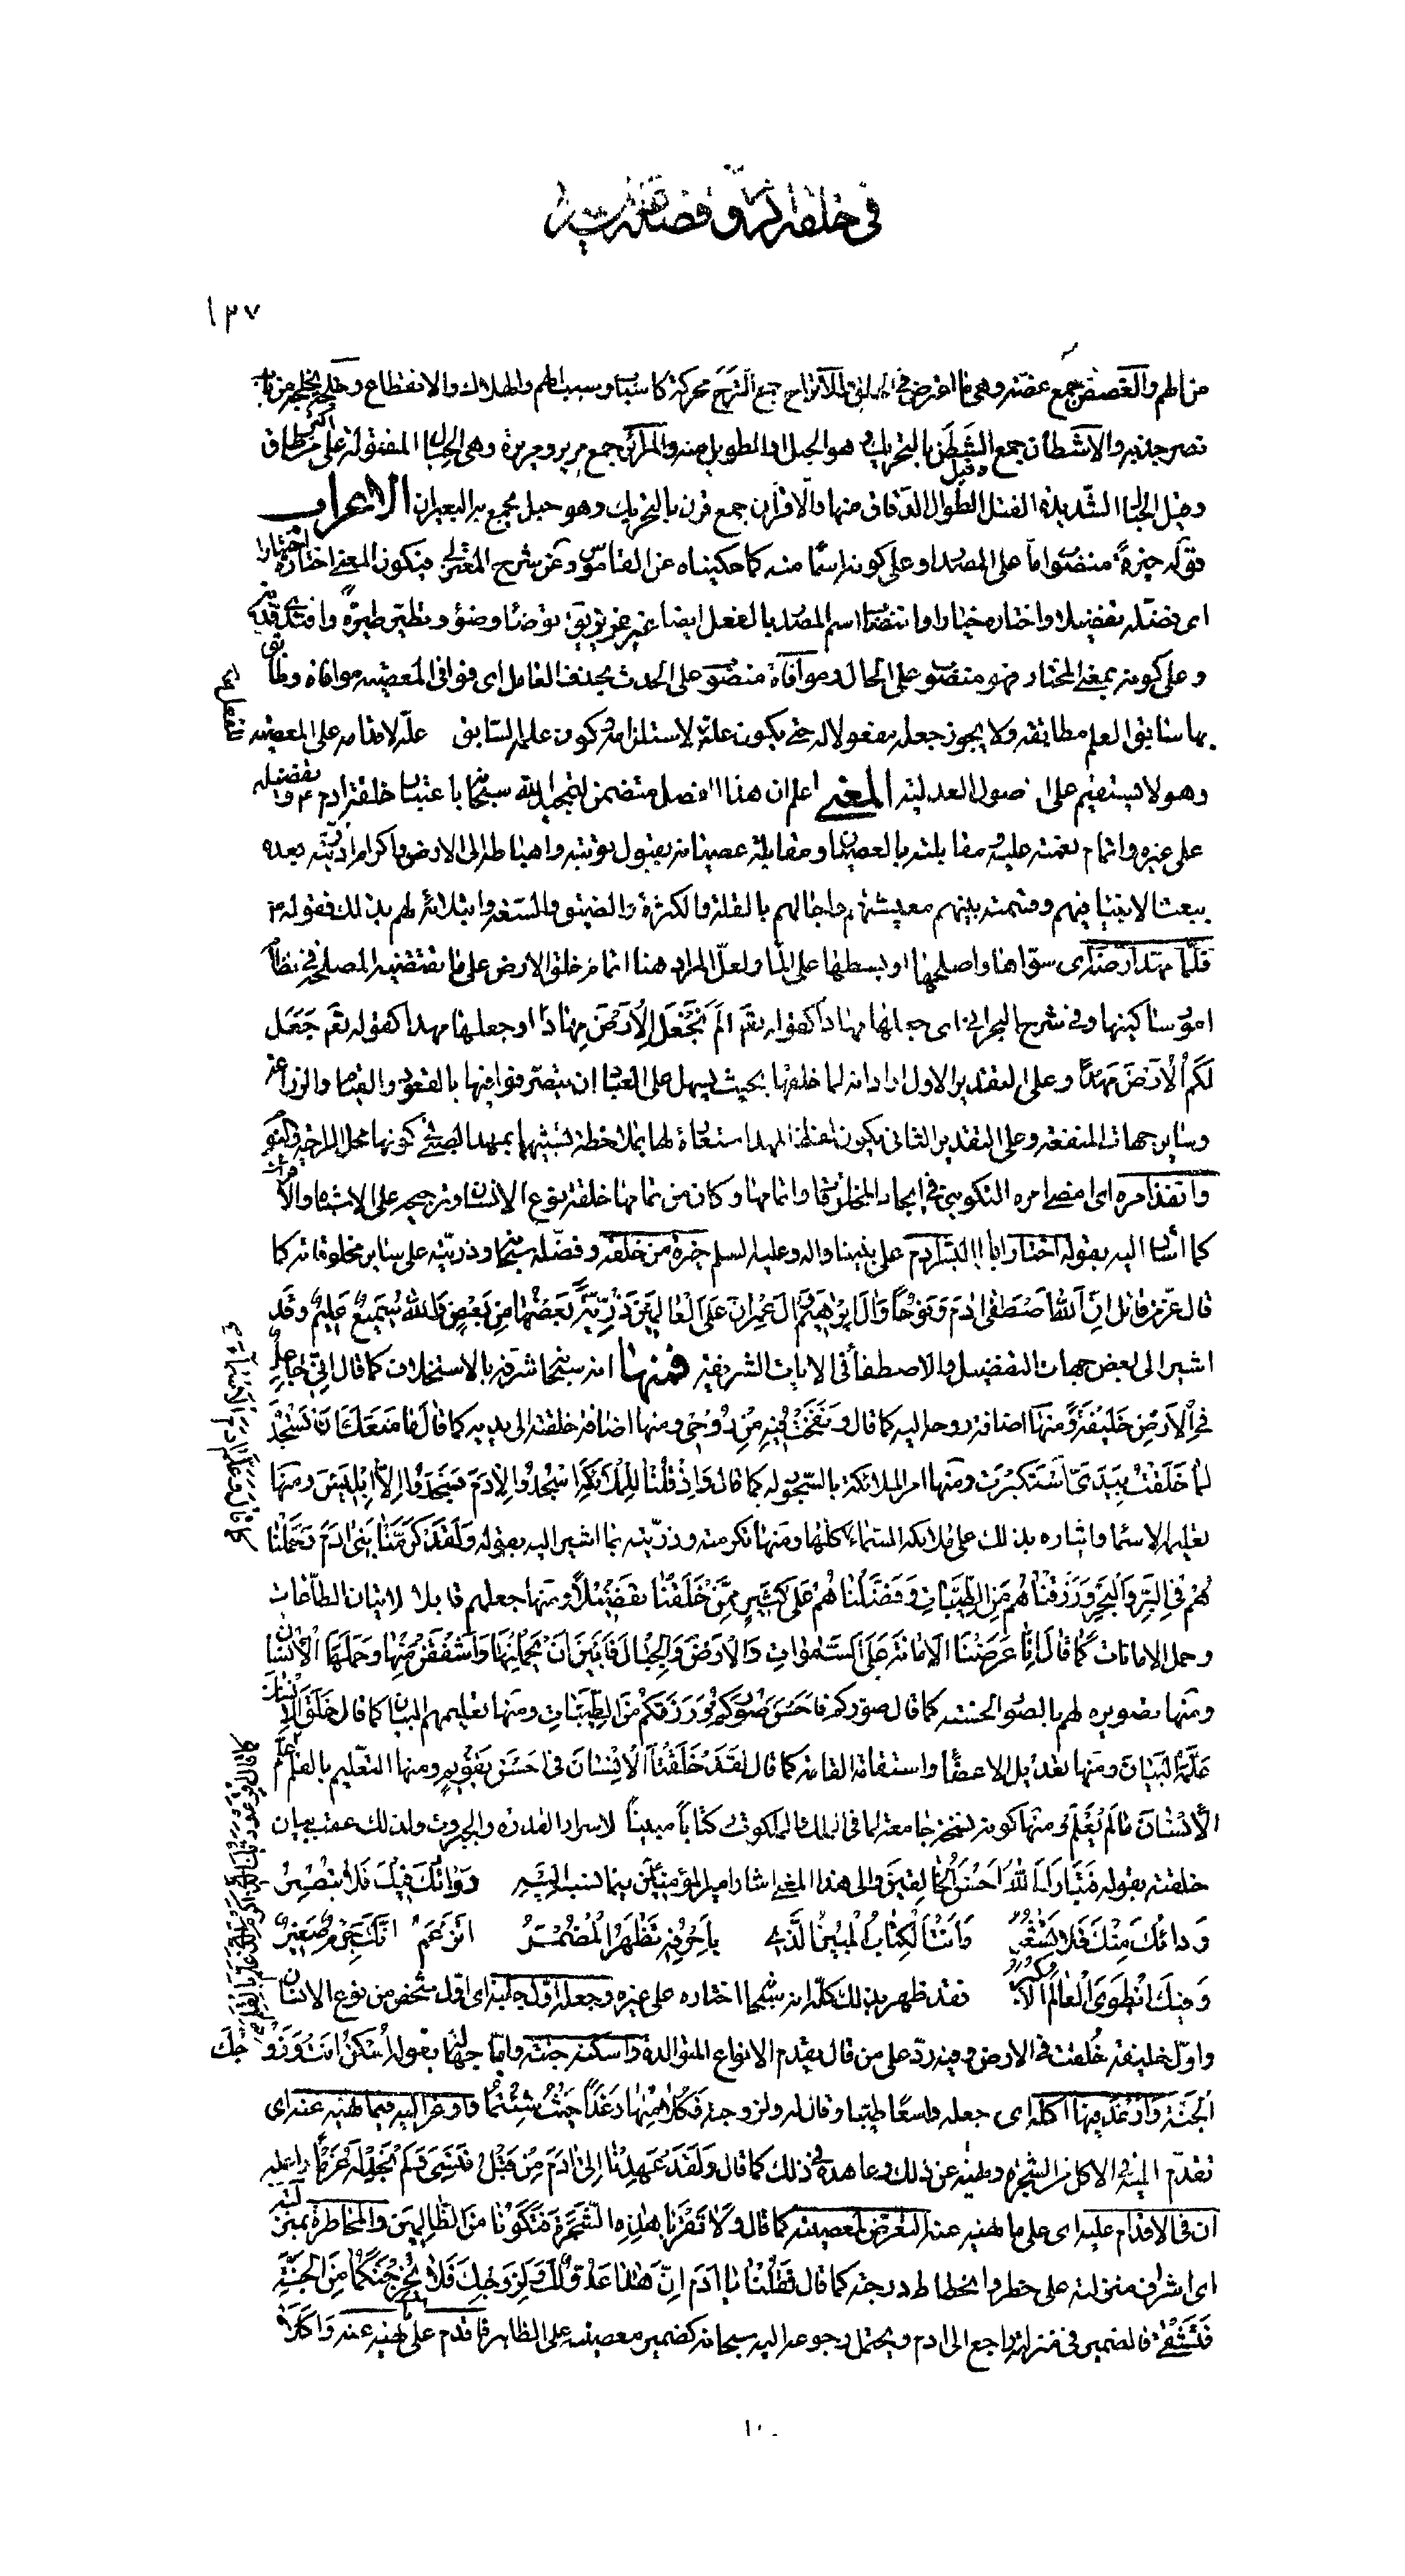 في خلقة آدم و
١٣٧
من الهم والغصص جمع غصّة وهى ما اعترض في الحلق والأتراح جمع الترح محركة كاسباب وسبب الهم والهلاك والانقطاع وخلجه يخلجه من باب
نصر جذبه والاشطان جمع الشَّطَن بالتحريك وهو الحبل او الطويل منه والمرائر جمع مرير ومريرة وهى الحبال المفتولة على اكثر من طاق
وقيل الحبال الشديدة الفتل وقيل الطوال الدّقاق منها والأقران جمع قرن بالتحريك وهو حبل يجمع به البعيران الاعراب
قوله خيرةً منصوب امّا على المصدر او على كونه اسمًا منه كما حكيناه عن القاموس وعن شرح المعتزلى فيكون المعنى اختاره اختيارا
اى فضّله تفضيلا واختاره خيارا وانتصاب اسم المصدر بالفعل ايضا غير عزيز يقال توضّأ وضوء وتطيّر طيرةً وافتدى فدية
وعلى كونه بمعنى المختار فهو منصوب على الحال وموافاةً منصوب على الحدث بحذف العامل اى فوافى المعصية موافاة وطابق
بها سابق العلم مطابقة ولا يجوز جعله مفعولا له حتى يكون علة لاستلزامه كون علمه السّابق علّة لاقدامه على المعصية
وهو لا يستقيم على اصول العدلية المعنى اعلم ان هذا الفصل متضمن لتمجيد الله سبحانه باعتبار خلقة آدم ع وتفضيله
على غيره واتمام نعمته عليه ومقابلته بالعصيان ومقابلة عصيانه بقبول توبته واهباطه الى الارض واكرام ذرّيّته بعده
ببعث الانبياء فيهم وقسمته بينهم معيشتهم وآجالهم بالقلة والكثرة والضيق والسّعة وابتلائه لهم بذلك فقوله ع
فلمّا مهد ارضه اى سوّاها واصلحها او بسطها على الماء ولعلّ المراد هنا اتمام خلق الارض على ما تقتضيه المصلحة في نظام
امور ساكنيها وفي شرح البحراني اى جعلها مهادًا كقوله تعالى أَلَمْ نَجْعَلِ الْأَرْضَ مِهَادًا او جعلها مهدا كقوله تعالى جَعَلَ
لَكُمُ الْأَرْضَ مَهْدًا وعلى التقدير الاول اراد انه لما خلقها بحيث يسهل على العباد ان يتصرفوا فيها بالقعود والقيام والزراعة
وساير جهات المنفعة وعلى التقدير الثانى يكون لفظ المهد استعارة لها بملاحظة تشبيهها بمهد الصبىّ في كونها محل الراحة والنوم
وانفذ امره اى امضى امره التكوينى فى ايجاد المخلوقات واتمامها وكان من تمامها خلقة نوع الانسان وترجيحه على الاشباه والاقران
كما اشار اليه بقوله اختار ابا البشر آدم على نبينا وآله وعليه السلم خيرة من خلقه وفضّله سبحانه وذريّته على ساير مخلوقاته كما
قال عزّ من قائل إِنَّ اللهَ اصْطَفَى آدَمَ وَنُوحًا وَآلَ إِبْرَاهِيمَ وَآلَ عِمْرَانَ عَلَى الْعَالَمِينَ ذُرِّيَّةً بَعْضُهَا مِنْ بَعْضٍ وَاللهُ سَمِيعٌ عَلِيمٌ وقد
اشير الى بعض جهات التفضيل والاصطفاء في الايات الشريفة فمنها انه سبحانه شرّفه بالاستخلاف كما قال إِنِّي جَاعِلٌ
فِي الْأَرْضِ خَلِيفَةً ومنها اضافة روحه اليه كما قال وَنَفَخْتُ فِيهِ مِنْ رُوحِي ومنها اضافة خلقته الى يديه كما قال مَا مَنَعَكَ أَنْ تَسْجُدَ
لِمَا خَلَقْتُ بِيَدَيَّ أَسْتَكْبَرْتَ ومنها امر الملائكة بالسّجود له كما قال وَإِذْ قُلْنَا لِلْمَلَائِكَةِ اسْجُدُوا لِآدَمَ فَسَجَدُوا إِلَّا إِبْلِيسَ ومنها
تعليمه الاسماء وايثاره بذلك على ملائكة السّماء كلها ومنها تكرمته وذرّيته بما اشير اليه بقوله وَلَقَدْ كَرَّمْنَا بَنِي آدَمَ وَحَمَلْنَا
هُمْ فِي الْبَرِّ وَالْبَحْرِ وَرَزَقْنَاهُمْ مِنَ الطَّيِّبَاتِ وَفَضَّلْنَاهُمْ عَلَى كَثِيرٍ مِمَّنْ خَلَقْنَا تَفْضِيلًا ومنها جعلهم قابلا لاتيان الطّاعات
وحمل الامانات كما قال إِنَّا عَرَضْنَا الْأَمَانَةَ عَلَى السَّمٰوَاتِ وَالْأَرْضِ وَالْجِبَالِ فَأَبَيْنَ أَنْ يَحْمِلْنَهَا وَأَشْفَقْنَ مِنْهَا وَحَمَلَهَا الْإِنْسَانُ
ومنها تصويره لهم بالصّور الحسنة كما قال صوّركم فَأَحْسَنَ صُوَرَكُمْ وَرَزَقَكُمْ مِنَ الطَّيِّبَاتِ ومنها تعليمهم البيان كما قال خَلَقَ الْإِنْسَانَ
عَلَّمَهُ الْبَيَانَ ومنها تعديل الاعضاء واستقامة القامة كما قال لَقَدْ خَلَقْنَا الْإِنْسَانَ فِي أَحْسَنِ تَقْوِيمٍ ومنها التّعليم بالقلم عَلَّمَ
الْإِنْسَانَ مَا لَمْ يَعْلَمْ ومنها كونه نسخة جامعة لما في الملك والملكوت كتاباً مبيناً لاسرار القدرة والجبروت ولذلك عقّب بيان
خلقته بقوله فَتَبَارَكَ اللهُ أَحْسَنُ الْخَالِقِينَ والى هذا المعنى اشار امير المؤمنين فيما نسب اليه دَوَاؤُكَ فِيكَ فَلَا تُبْصِرُ
وَدَائُكَ مِنْكَ فَلَا تَشْعُرُ وَأَنْتَ الْكِتَابُ الْمُبِينُ الَّذِي بِأَحْرُفِهِ تَظْهَرُ الْمُضْمَرُ اتزعم انّك جِرْمٌ صَغِيرٌ
وَفِيكَ انْطَوَى الْعَالَمُ الْأَكْبَرُ فقد ظهر بذلك كلّه انه سبحانه اختاره على غيره وجعله اوّل جبلته اى اوّل شخص من نوع الانسان
واوّل خليفة خُلقت في الارض وفيه ردّ على من قال بقدم الانواع المتوالدة واسكنه جنّته وانّما بقوله اسْكُنْ أَنْتَ وَزَوْجُكَ
الْجَنَّةَ وارغد فيها اكله اى جعله واسعًا طيّبا وقال له ولزوجته فَكُلَا مِنْهَا رَغَدًا حَيْثُ شِئْتُمَا واوعز اليه فيما نهيه عنه اى
تقدّم اليه في الاكل من الشجرة ونهيه عن ذلك وعاهده في ذلك كما قال وَلَقَدْ عَهِدْنَا إِلَى آدَمَ مِنْ قَبْلُ فَنَسِيَ وَلَمْ نَجِدْ لَهُ عَزْمًا واعلمه
ان في الاقدام عليه اى على ما نهيه عنه التعرّض لمعصيته كما قال وَلَا تَقْرَبَا هٰذِهِ الشَّجَرَةَ فَتَكُونَا مِنَ الظَّالِمِينَ والمخاطرة بمنزلته
اى اشراف منزلته على خطر وانحطاط درجته كما قال فَقُلْنَا يَا آدَمُ إِنَّ هٰذَا عَدُوٌّ لَكَ وَلِزَوْجِكَ فَلَا يُخْرِجَنَّكُمَا مِنَ الْجَنَّةِ
فَتَشْقَى فالضمير في منزلته راجع الى آدم ويحتمل رجوعه اليه سبحانه كضمير معصيته على الظاهر فاقدم على ما نهيه عنه وَأَكَلَا
١٠